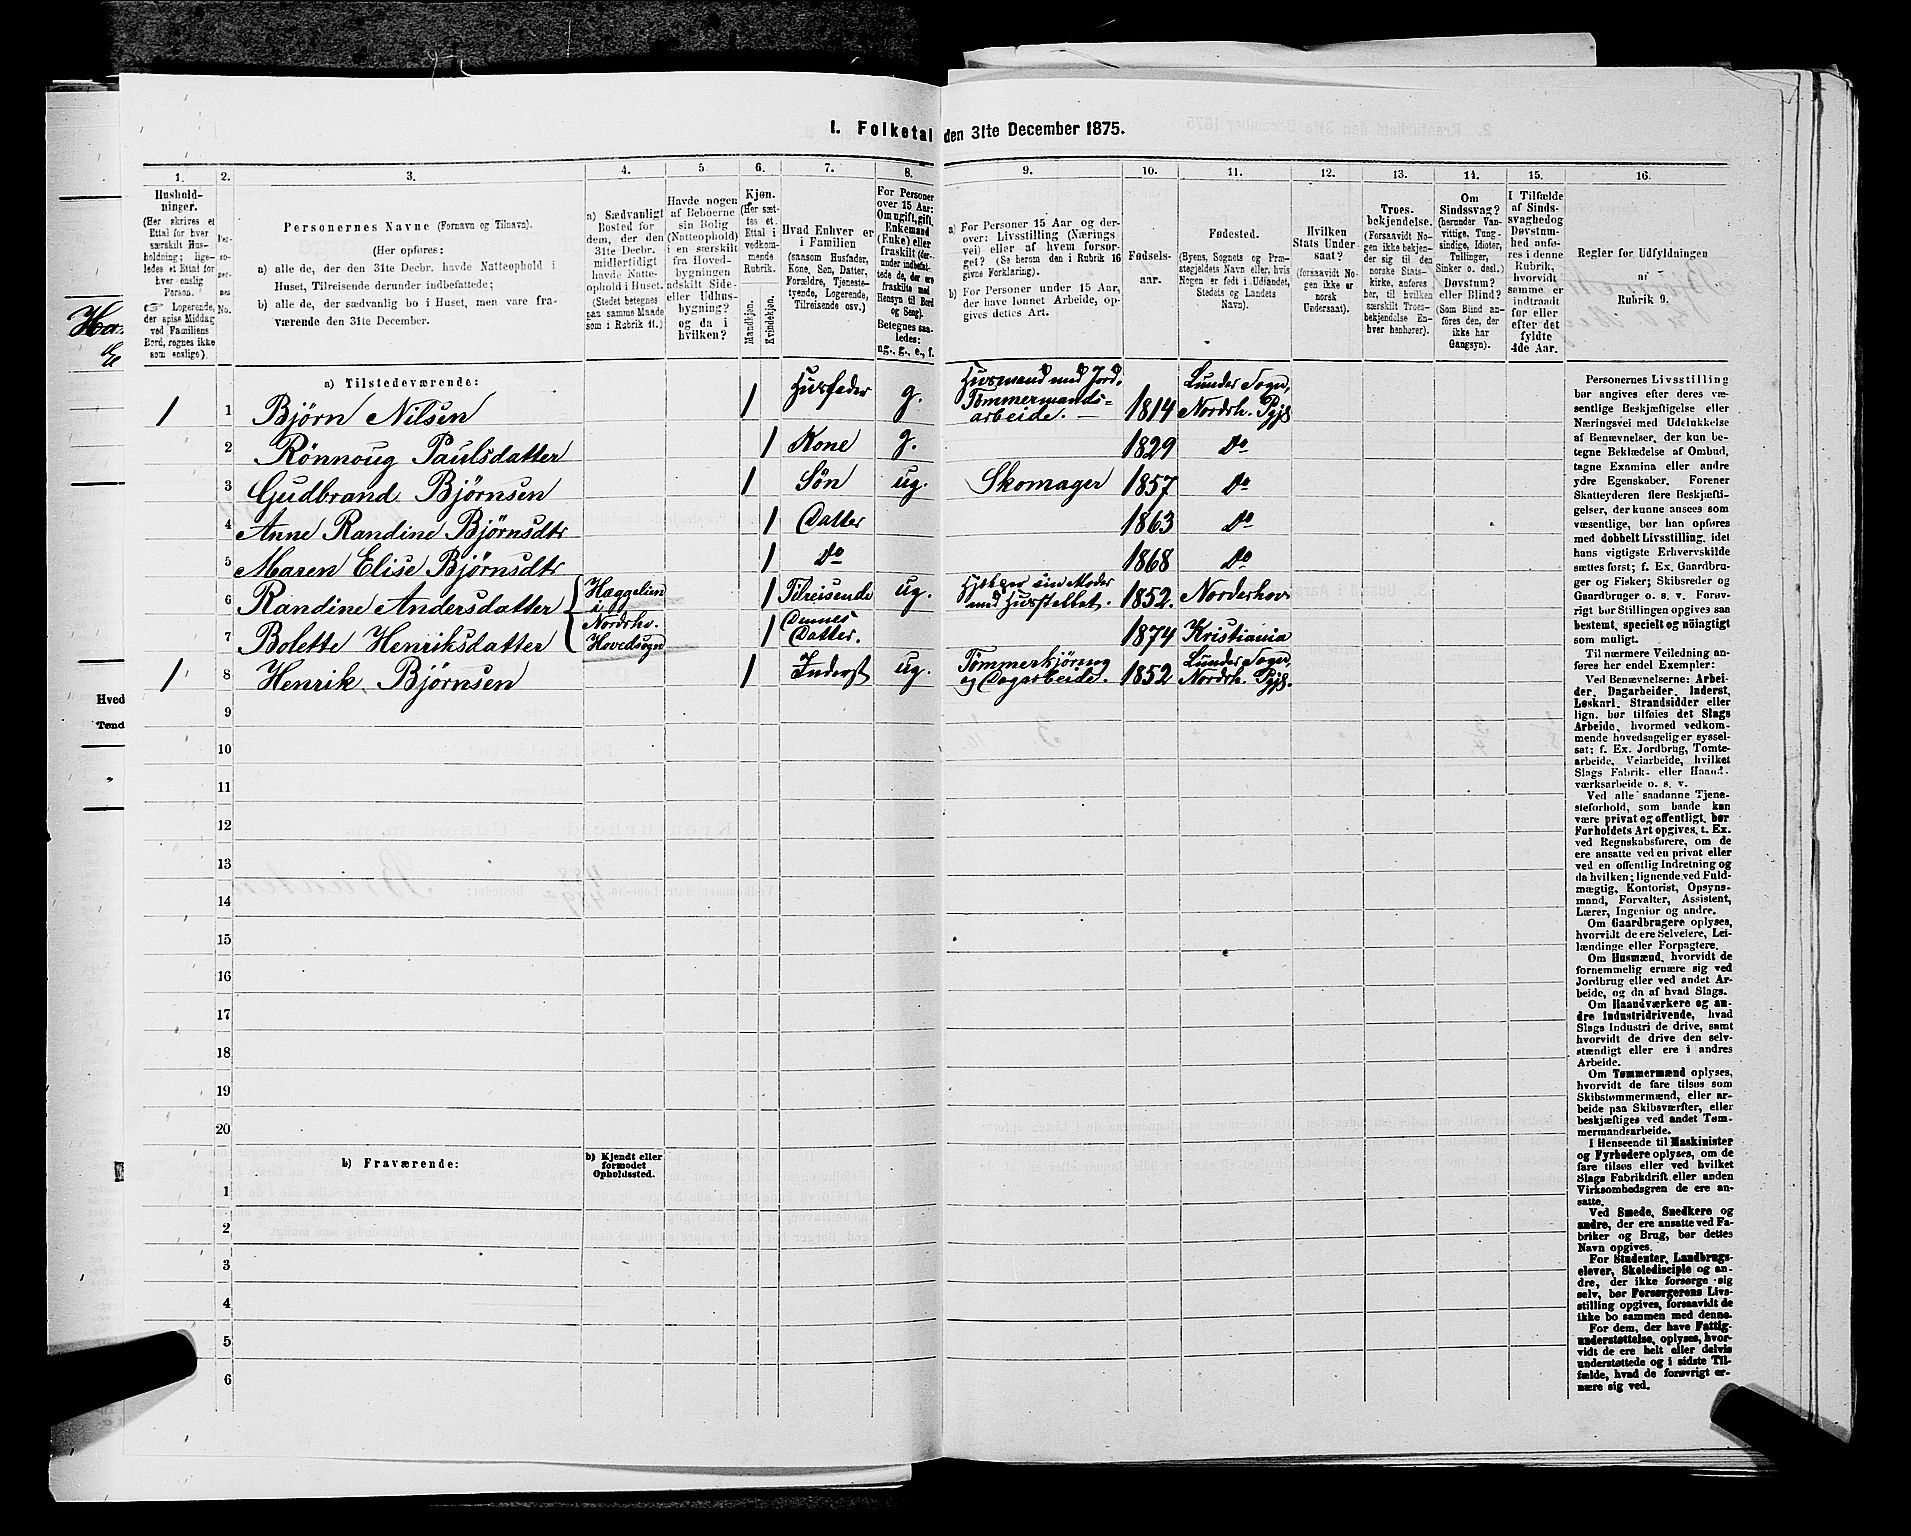 I. Folketal den 31te December 1875.
1. 2. 3. 4. 5. 6. 7. 8. 9. 10. 11. 12. 13. 14. 15. 16.
Hushold-
ninger.
(Her skrives et
Ettal for hver
særskilt Hus-
holdning; lige-
ledes et Ettal for
hver enslig
Person.
Logerende,
der spise Middag
ved Familiens
Bord, regnes ikke
som enslige).
Per-
so-
ner-
nes
No.
Personernes Navne (Fornavn og Tilnavn).
(Her opføres:
a) alle de, der den 31te Decbr. havde Natteophold i
Huset, Tilreisende derunder indbefattede;
b) alle de, der sædvanlig bo i Huset, men vare fra-
værende den 31te December.
a) Sædvanligt
Bosted for
dem, der den
31te Decbr.
midlertidigt
havde Natte-
ophold i Huset.
(Stedet betegnes
paa samme Maade
som i Rubrik 11.)
Havde nogen
af Beboerne
sin Bolig
(Natteophold)
i en særskilt
fra Hoved-
bygningen
adskilt Side-
eller Udhus-
bygning?
og da i
hvilken?
Kjøn.
(Her sæt-
tes et
Ettal i
vedkom-
mende
Rubrik.
Mandkjøn.
Kvindekjøn.
Hvad Enhver er
i Familien
(saasom Husfader,
Kone, Søn, Datter,
Forældre, Tjeneste-
tyende, Logerende,
Tilreisende osv.)
For Personer
over 15 Aar:
Om ugift, gift,
Enkemand
(Enke) eller
fraskilt (der-
under indbefat-
tede de, der ere
fraskilte med
Hensyn til Bord
og Seng).
Betegnes saa-
ledes:
ug., g., e., f.
a) For Personer 15 Aar og der-
over: Livsstilling (Nærings
vei) eller af hvem forsør-
get? (Se herom den i Rubrik 16
givne Forklaring).
b) For Personer under 15 Aar,
der have lønnet Arbeide, op-
gives dettes Art.
Fødsels-
aar.
Fødested.
(Byens, Sognets og Præ-
stegjeldets Navn eller, hvis
Nogen er født i Udlandet,
Stedets og Landets
Navn).
Hvilken
Stats Under
saat?
(forsaavidt No-
gen ikke er
norsk
Undersaat).
Troes-
bekjendelse.
(Forsaavidt No-
gen ikke bekjen-
der sig til den
norske Stats-
kirke, anføres
her, til hvilken
særskilt Troes-
bekjendelse En-
hver henhører).
Om
Sindssvag?
(herunder Van-
vittige, Tung-
sindige, Idioter,
Tullinger,
Sinker o. desl.)
Døvstum?
eller Blind?
(Som Blind an-
føres den, der
ikke har
Gangsyn).
I Tilfælde
af Sinds-
svaghed og
Døvstum-
hed anfø-
res i denne
Rubrik,
hvorvidt
samme er
indtraadt
før eller
efter det
fyldte
4de Aar.
Regler for Udfyldningen
af
Rubrik 9.
a) Tilstedeværende:
1 1 Bjørn Nilsen 1 Husfader g. Husmand med Jord. Tømmermands-arbeide. — 1814 Lunder Sogn, Nordrh. Pgjs
2 Rönnoug Paulsdatter 1 Kone g. 1829 Do
3 Gudbrand Bjørnsen 1 Søn ug. Skomager 1857 Do
4 Anne Randine Bjørnsdtr 1 Datter 1863 Do
5 Maren Elise Bjørnsdtr 1 Do 1868 Do
6 Randine Andersdatter { Haggelien i 1 Tilreisende ug. Hjelper sin Moder med Husstellet. 1852. Norderhov
7 Bolette Henriksdatter { Nordrho. Hovedsogn 1 Dennes Datter. 1874 Kristiania
1 8 Henrik Bjørnsen 1 Inderst ug. Tømmerkjøring og Dagarbeide. 1852 Lunder Sogn, Nordrh. Pgjs.
9
10
11
12
13
14
15
16
17
18
19
20
b) Fraværende:
b) Kjendt eller
formodet
Opholdssted.
1
2
3
4
5
6
Personernes Livsstilling
bør angives efter deres væ-
sentlige Beskjæftigelse eller
Næringsvei med Udelukkelse
af Benævnelser, der kun be-
tegne Beklædelse af Ombud,
tagne Examina eller andre
ydre Egenskaber. Forener
Skatteyderen flere Beskjæfti-
gelser, der kunne ansees som
væsentlige, bør han opføres
med dobbelt Livsstilling, idet
hans vigtigste Erhvervskilde
sættes først; f. Ex. Gaardbru-
ger og Fisker; Skibsreder og
Gaardbruger o. s. v. Forøv-
rigt bør Stillingen opgives saa
bestemt, specielt og nöiagtigt
som muligt.
Til nærmere Veiledning an-
føres her endel Exempler:
Ved Benævnelserne: Arbei-
der, Dagarbeider, Inderst,
Løskarl, Strandsidder eller
lign. bør tilføies det Slags
Arbeide, hvormed vedkom-
mende hovedsagelig er syssel-
sat; f. Ex. Jordbrug, Tomte-
arbeide, Veiarbeide, hvilket
Slags Fabrik- eller Haand-
værksarbeide o. s. v.
Ved alle saadanne Tjene-
steforhold, som baade kan
være privat og offentligt, bør
Forholdets Art opgives, t. Ex.
ved Regnskabsførere, om de
ere ansatte ved en privat eller
ved en offentlig Indretning og
da hvilken; lignende ved Fuld-
mægtig, Kontorist, Opsyns-
mand, Forvalter, Assistent,
Lærer, Ingeniør og andre.
Om Gaardbrugere oplyses,
hvorvidt de ere Selveiere, Lei-
lændinge eller Forpagtere.
Om Husmænd, hvorvidt de
fornemmelig ernære sig ved
Jordbrug eller ved andet Ar-
beide, og da af hvad Slags.
Om Haandværkere og an-
dre Industridrivende, hvad
Slags Industri de drive, samt
hvorvidt de drive den selv-
stændigt eller ere i andres
Arbeide.
Om Tømmermænd oplyses,
hvorvidt de fare tilsøs som
Skibstømmermænd, eller ar-
beide paa Skibsværfter, eller
beskjæftiges ved andet Tøm-
mermandsarbeide.
I Henseende til Maskinister
og Fyrbødere oplyses, om de
fare tilsøs eller ved hvilket
Slags Fabrikdrift eller anden
Virksomhedsgren de ere an-
satte.
Ved Smede, Snedkere og
andre, der ere ansatte ved Fa-
briker og Brug, bør dettes
Navn opgives.
For Studenter, Landbrugs-
elever, Skoledisciple og an-
dre, der ikke forsørge sig
selv, bør Forsørgerens Livs-
stilling opgives, forsaavidt de
ikke bo sammen med denne.
For dem, der have Fattig-
understøttelse, oplyses, hvor-
vidt de ere helt eller delvis
understøttede og i sidste Til-
fælde, hvad de forøvrigt er-
nære sig ved.
Hved
Tønd